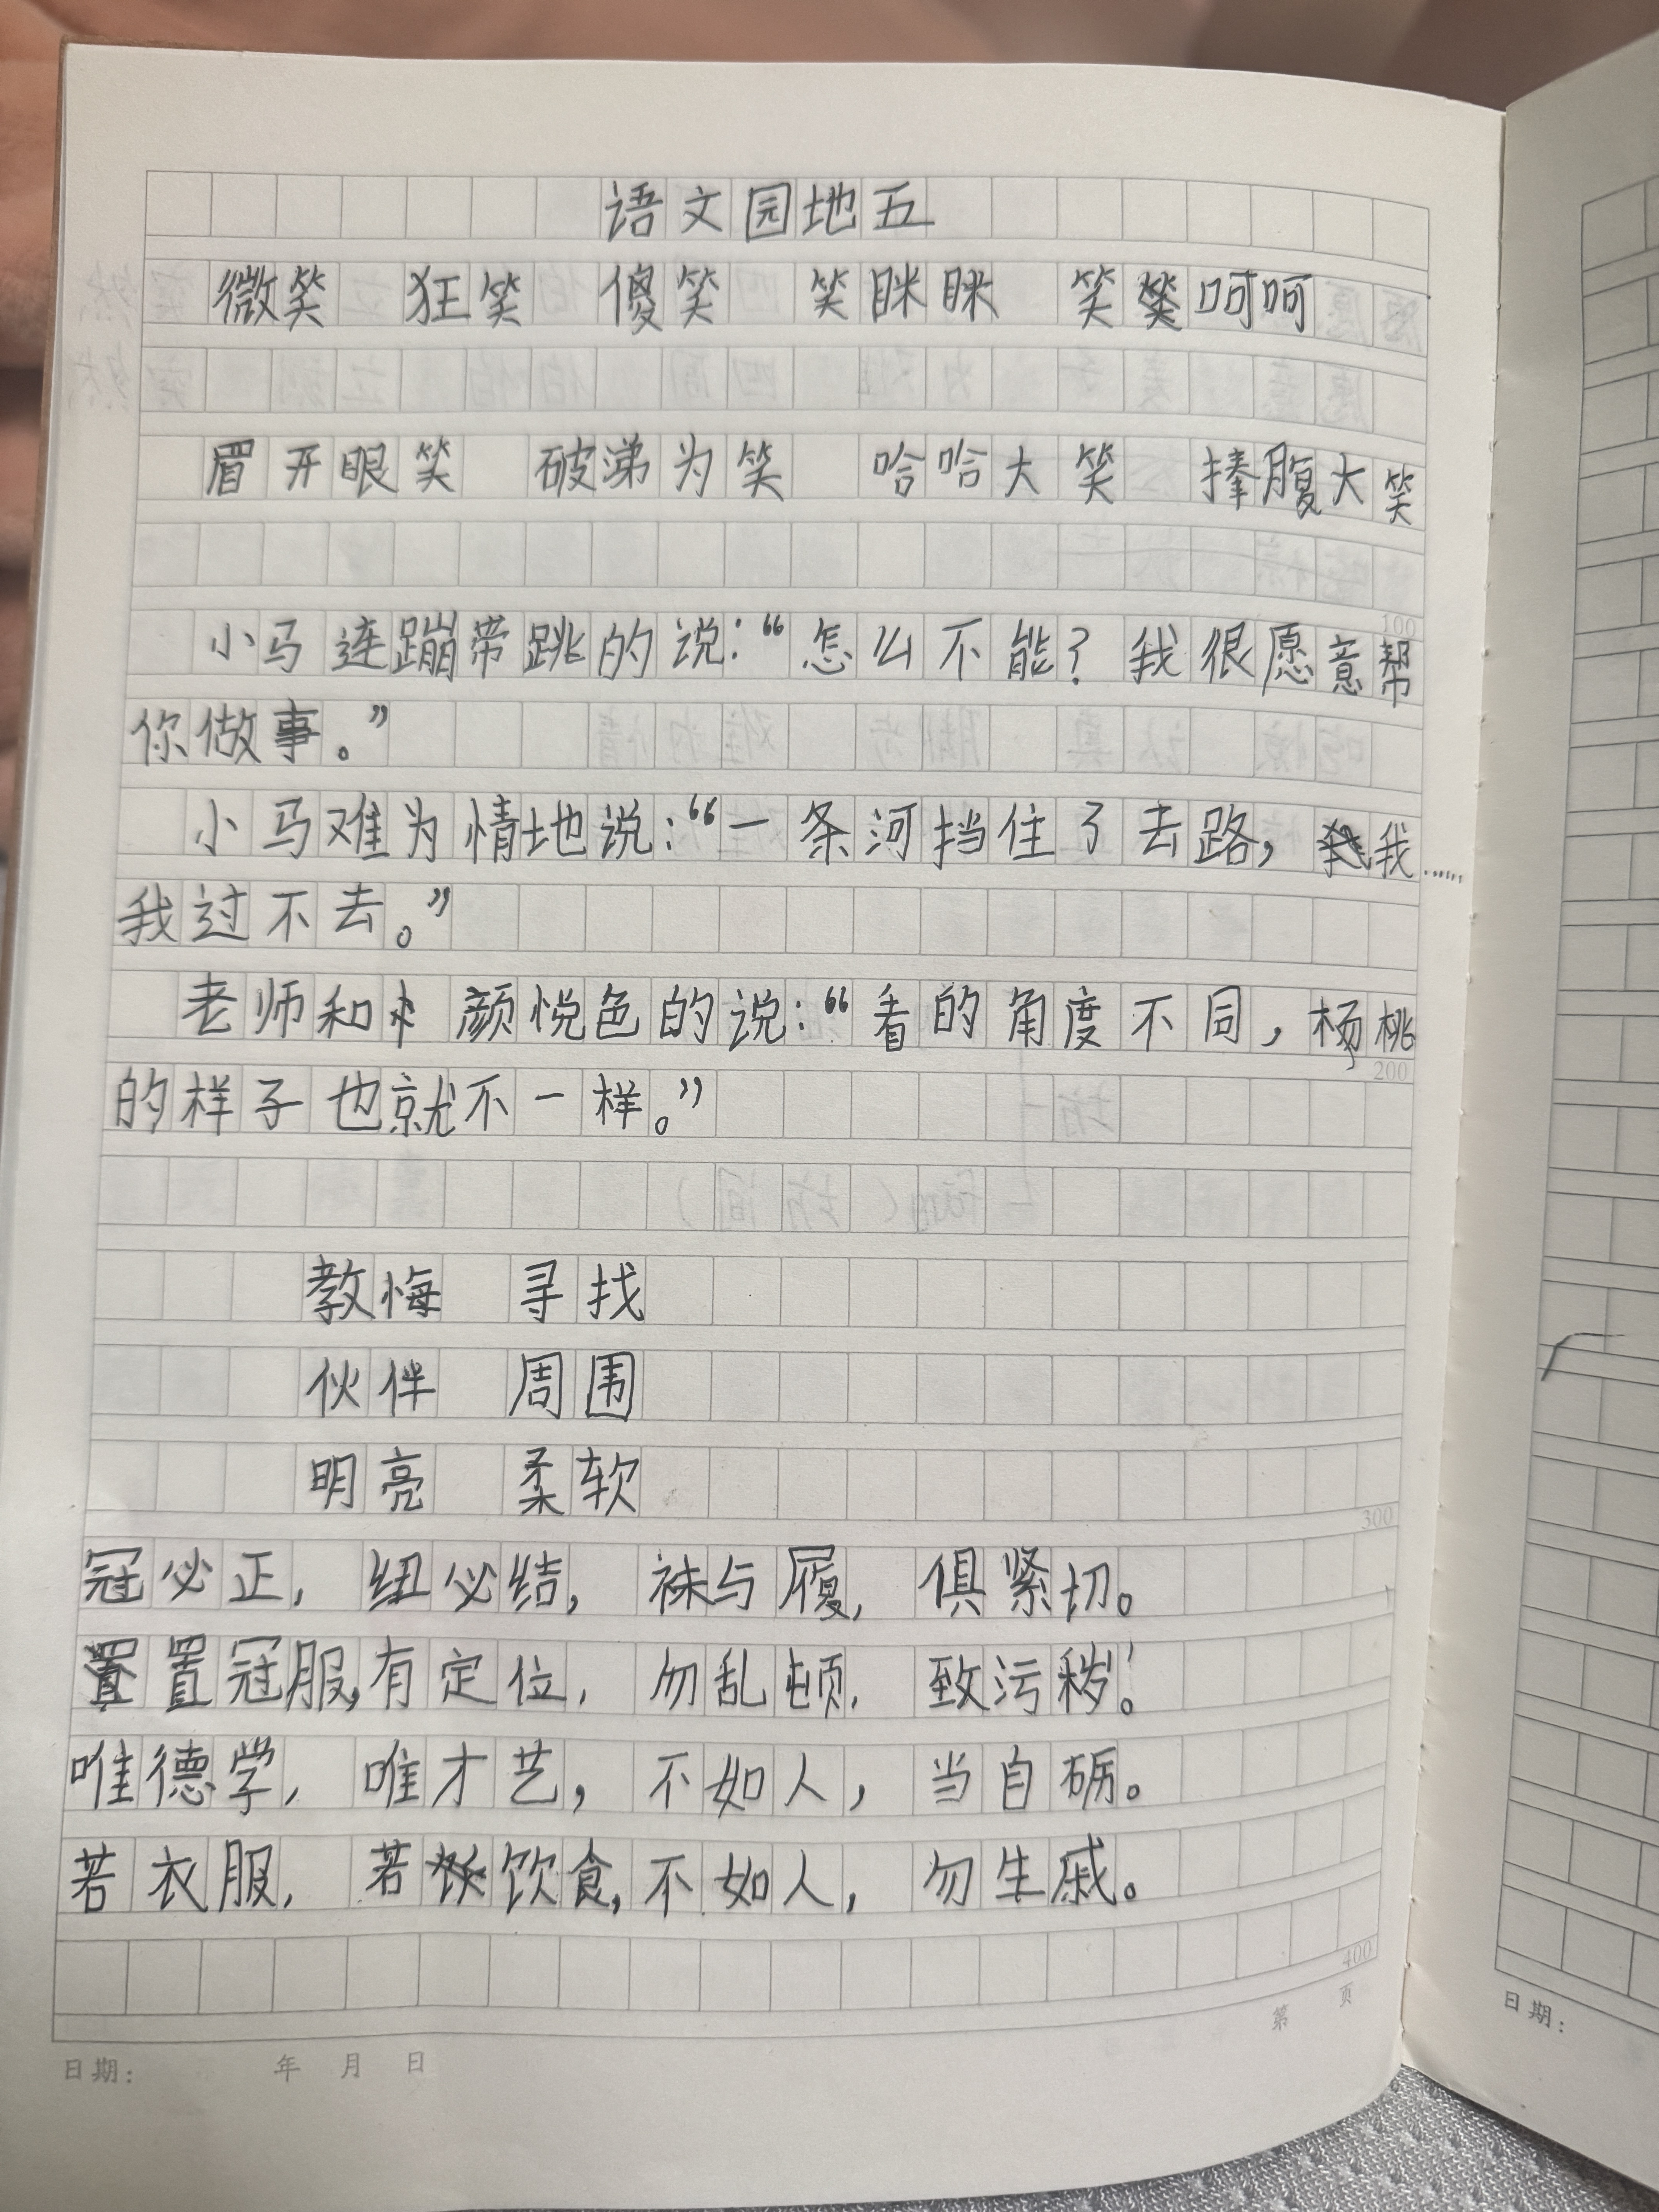 语文园地五
微笑 狂笑 傻笑 笑眯眯 笑呵呵
眉开眼笑 破涕为笑 哈哈大笑 捧腹大笑
小马连蹦带跳的说：“怎么不能？我很愿意帮
你做事。”
小马难为情地说：“一条河挡住了去路，我……
我过不去。”
老师和颜悦色的说：“看的角度不同，杨桃
的样子也就不一样。”
教悔 寻找
伙伴 周围
明亮 柔软
冠必正，纽必结，袜与履，俱紧切。
置冠服，有定位，勿乱顿，致污秽。
唯德学，唯才艺，不如人，当自砺。
若衣服，若饮食，不如人，勿生戚。
100
200
300
400
第 页
日期： 年 月 日
日期：